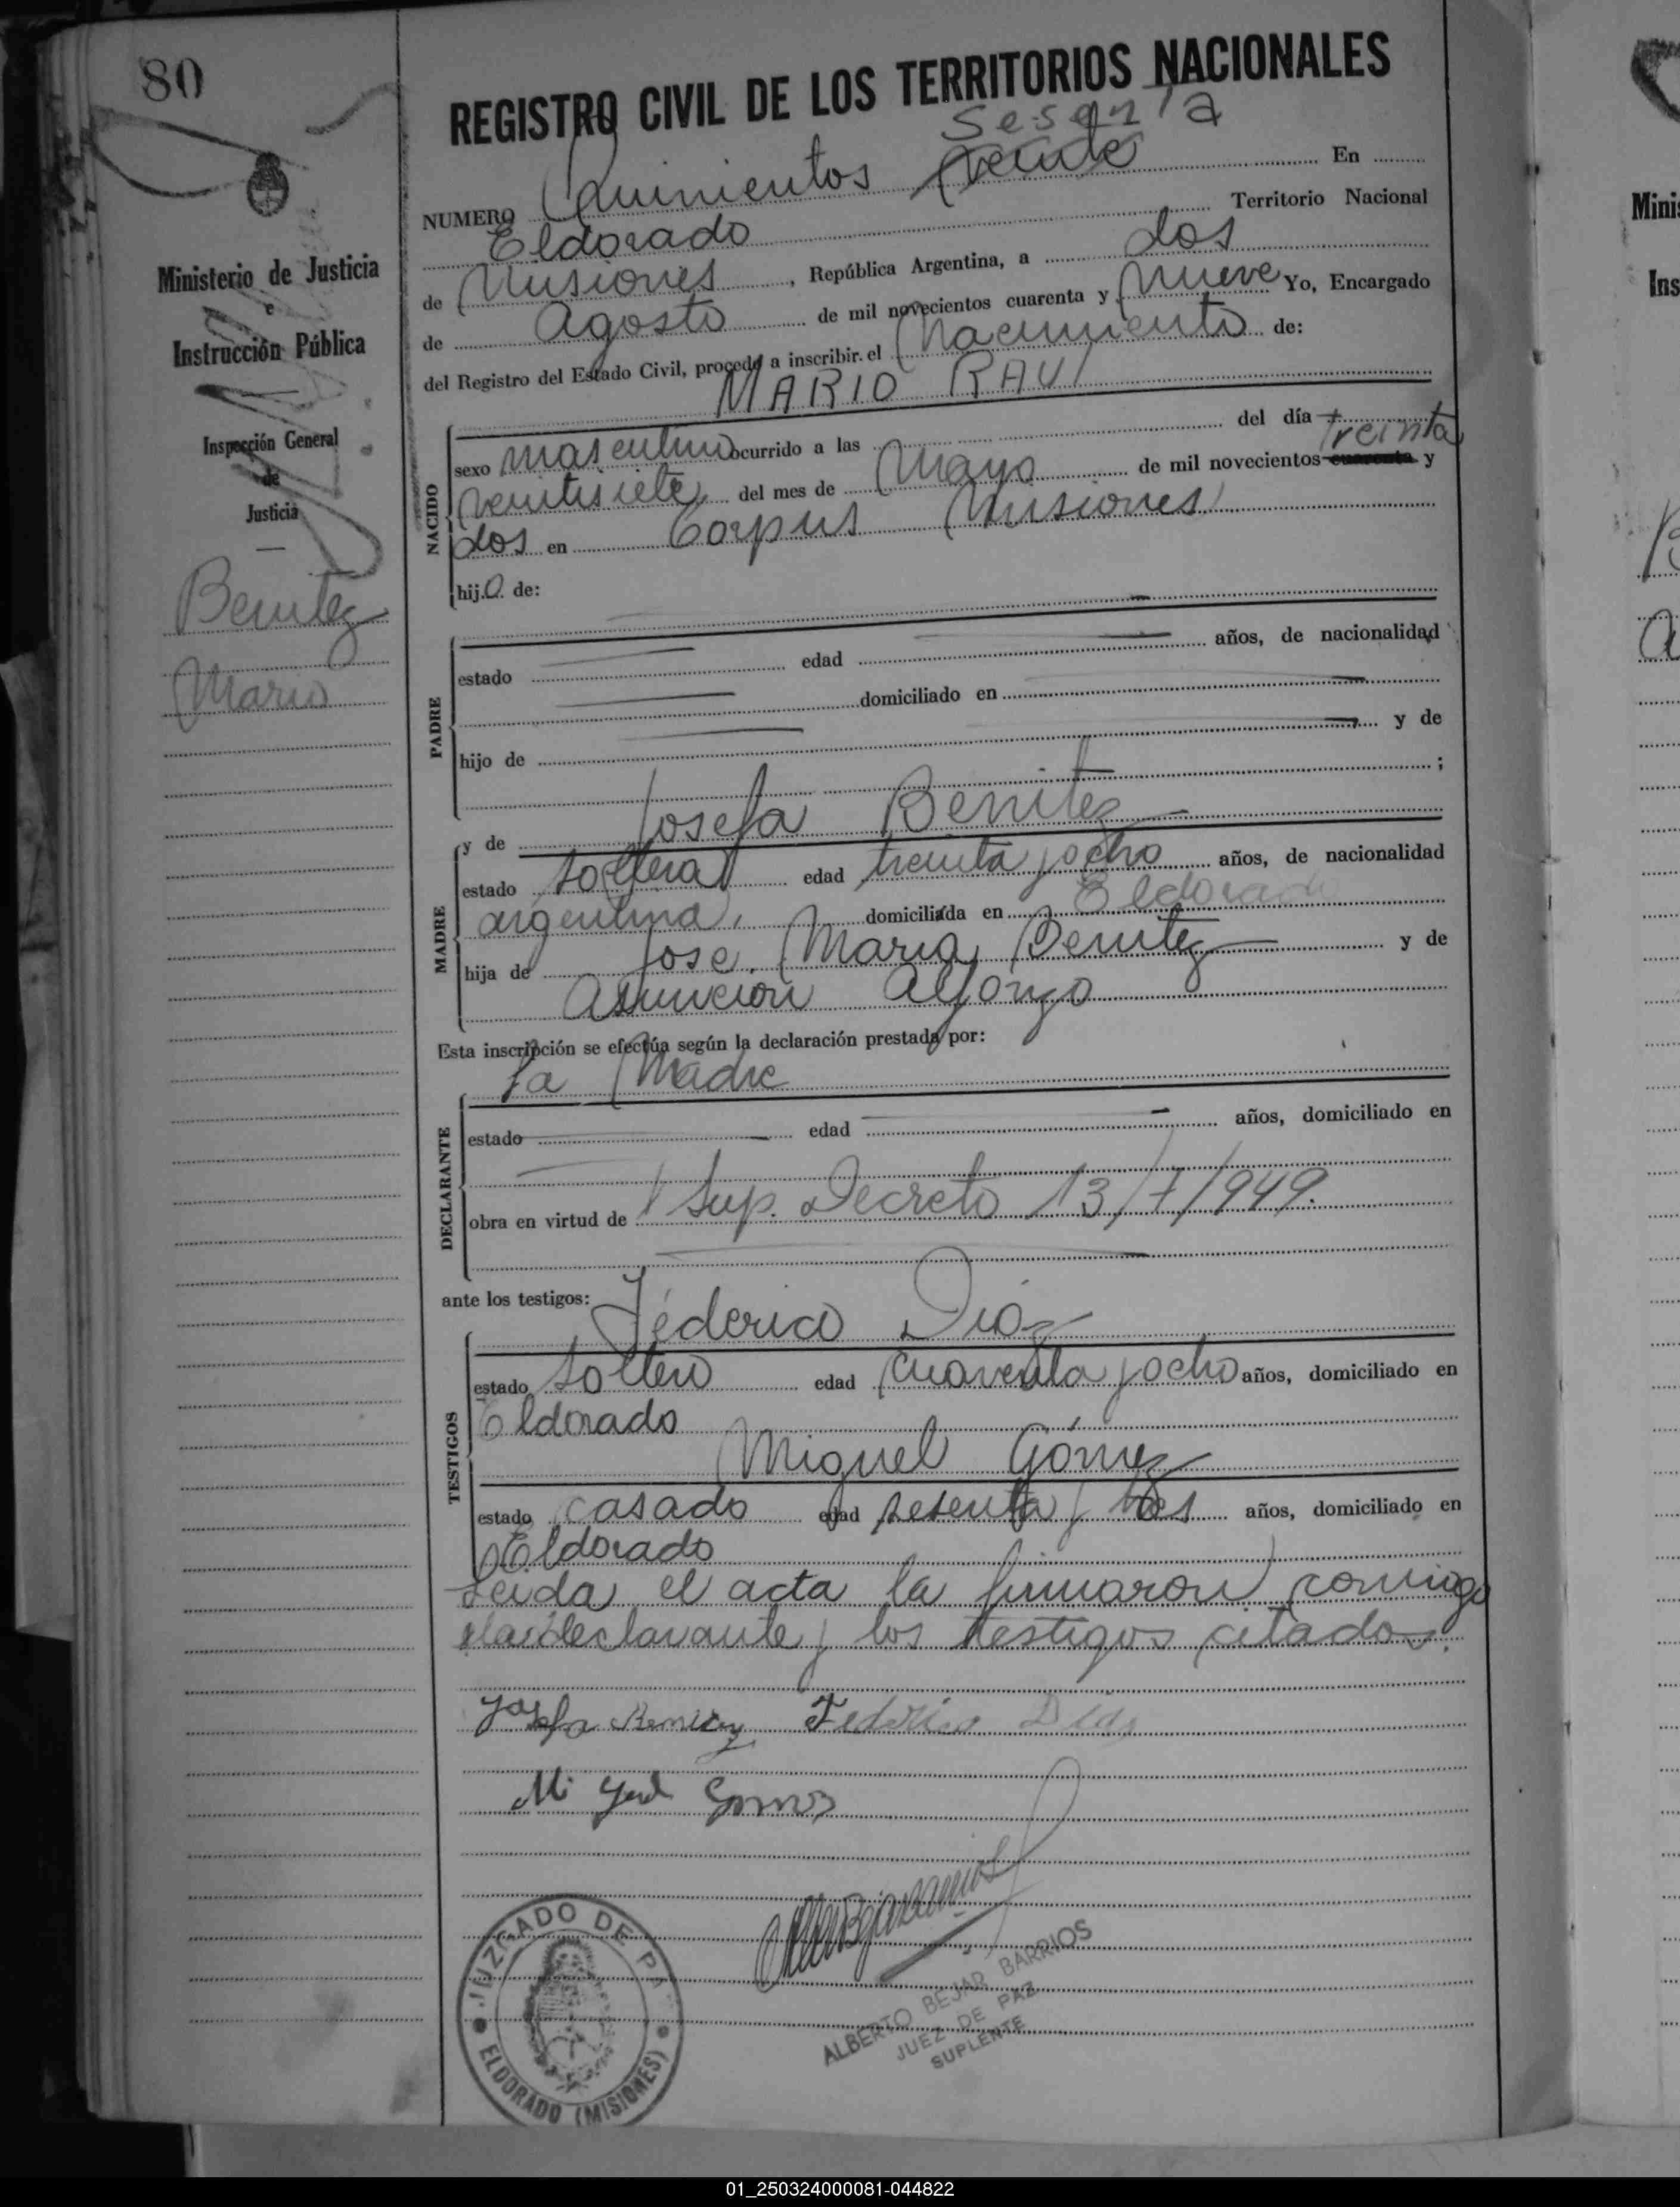 80
REGISTRO CIVIL DE LOS TERRITORIOS NACIONALES
Sesenta
NUMERO Quinientos veinte En
Eldorado Territorio Nacional
de Misiones, República Argentina, a dos
de Agosto de mil novecientos cuarenta y nueve Yo, Encargado
del Registro del Estado Civil, procedo a inscribir el Nacimiento de:
MARIO RAUl
Ministerio de Justicia
e
Instrucción Pública
Inspección General
de
Justicia
Benitez
Mario
NACIDO
sexo masculino ocurrido a las del día
veintisiete del mes de Mayo de mil novecientos cuarenta treinta y
dos en Corpus Misiones
hijo de:
PADRE
estado edad años, de nacionalidad
domiciliado en
hijo de y de
;
MADRE
y de Josefa Benitez
estado soltera edad treinta y ocho años, de nacionalidad
argentina, domiciliada en Eldorado
hija de Jose Maria Benitez y de
Asuncion Alfonzo
Esta inscripción se efectúa según la declaración prestada por:
la Madre
DECLARANTE
estado edad años, domiciliado en
obra en virtud de Sup. Decreto 13/7/949.
ante los testigos: Féderico Diaz
TESTIGOS
estado soltero edad cuarenta y ocho años, domiciliado en
Eldorado
Miguel Gómez
estado casado edad sesenta y tres años, domiciliado en
Eldorado
Leida el acta la firmaron conmigo
la declarante y los testigos citados.
Josefa Benitez Federico Dias
Mi guel Gomez
JUZGADO DE PAZ
ELDORADO (MISIONES)
ALBERTO BEJAR BARRIOS
JUEZ DE PAZ
SUPLENTE
Minis
Ins
01_250324000081-044822